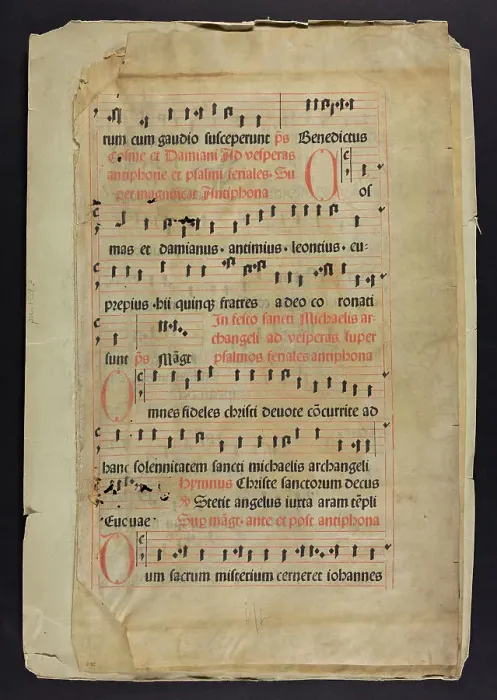 rum cum gaudio susceperunt ps Benedictus
Cosme et Damiani Ad vesperas
antiphone et psalmi feriales. Su
per magnificat Antiphona
C os
mas et damianus. antimius. leontius. eu:
prepius. hii quinqȝ fratres a deo co ronati
In festo sancti Michaelis ar
changeli ad vesperas super
sunt ps Māgt psalmos feriales antiphona
O mnes fideles christi devote cōcurrite ad
hanc solennitatem sancti michaelis archangeli
Hymnus Christe sanctorum decus
℣ Stetit angelus iuxta aram tēpli
Euouae Sup māgt. ante et post antiphona
D um sacrum misterium cerneret iohannes